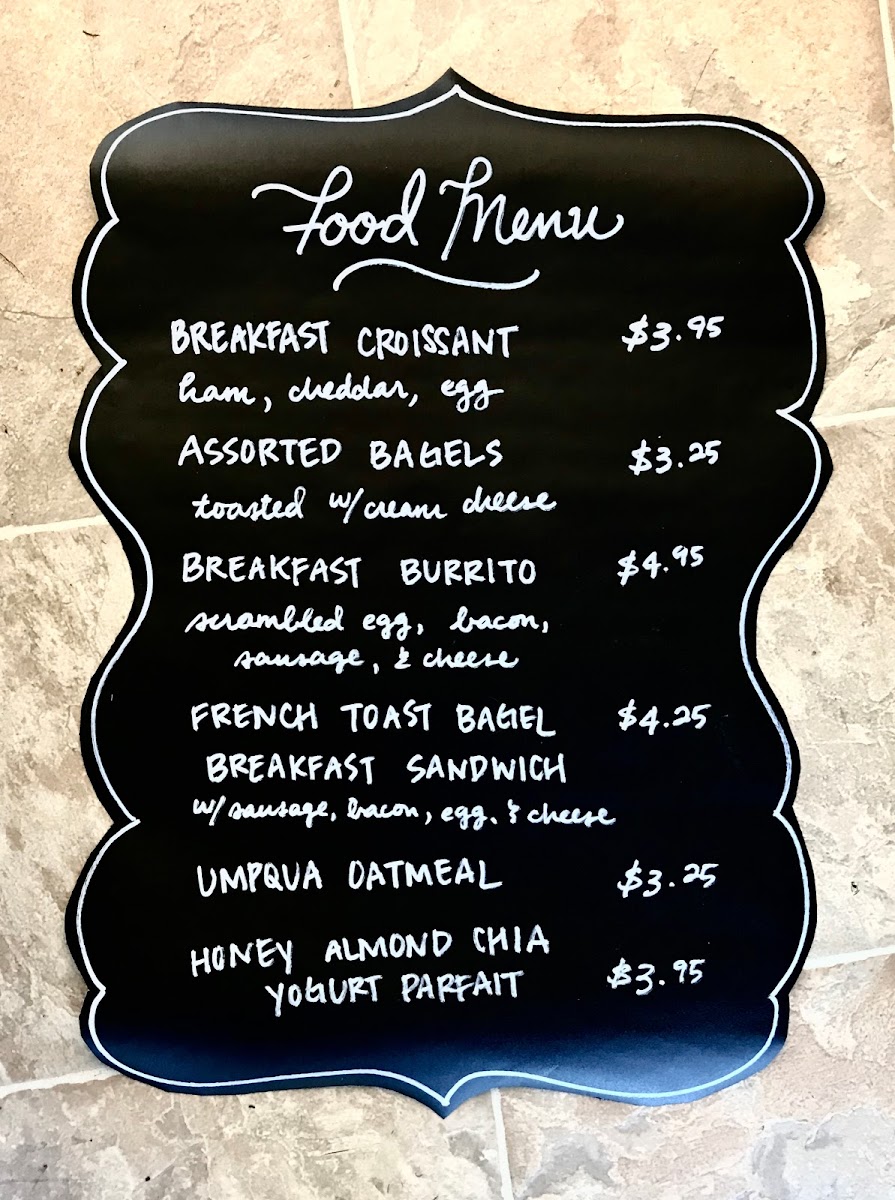 Food Menu
BREAKFAST CROISSANT $3.95
ham, cheddar, egg
ASSORTED BAGELS $3.25
toasted w/ cream cheese
BREAKFAST BURRITO $4.95
scrambled egg, bacon,
sausage, & cheese
FRENCH TOAST BAGEL $4.25
BREAKFAST SANDWICH
w/ sausage, bacon, egg, & cheese
UMPQUA OATMEAL $3.25
HONEY ALMOND CHIA
YOGURT PARFAIT $3.95